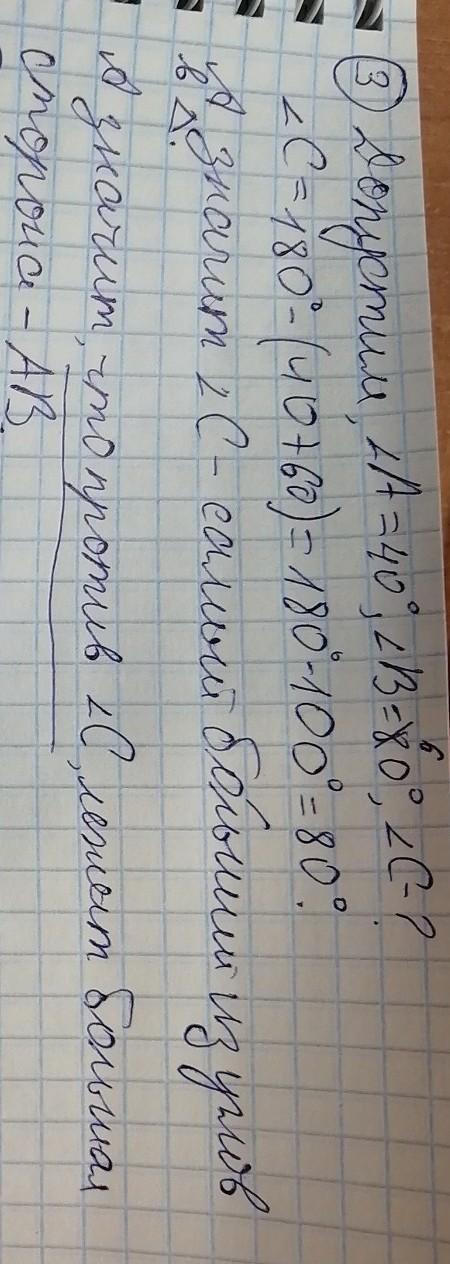 ③ Допустим, ∠A = 40°, ∠B = 60°, ∠C - ?
∠C = 180° - (40 + 60) = 180° - 100° = 80°.
А значит ∠C - самый большый из углов
в △.
А значит, что против ∠C, лежит большая
сторона - AB.